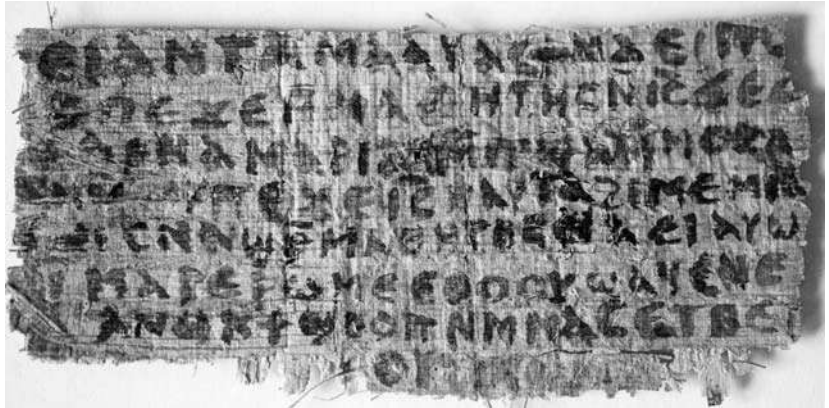 ⲉⲓ ⲁⲛ ⲧⲁⲙⲁⲁⲩ ⲁⲥϯ ⲛⲁⲉⲓ ⲡⲱ
ⲡⲉϫⲉ ⲙⲙⲁⲑⲏⲧⲏⲥ ⲛⲓ̅ⲥ̅ ϫⲉ ⲥ
ⲁⲣⲛⲁ ⲙⲁⲣⲓⲁⲙ ⲙⲡϣⲁ ⲙⲙⲟⲥ ⲁ
ⲡⲉϫⲉ ⲓ̅ⲥ̅ ⲛⲁⲩ ⲧⲁϩⲓⲙⲉ ⲙⲛ
ⲥⲛⲁϣⲣⲙⲁⲑⲏⲧⲏⲥ ⲛⲁⲉⲓ ⲁⲩⲱ
ⲓ ⲙⲁⲣⲉⲣⲱⲙⲉ ⲉⲑⲟⲟⲩ ϣⲁϥⲉ ⲛⲉ
ⲁⲛⲟⲕ ϯϣⲟⲟⲡ ⲛⲙⲙⲁⲥ ⲉⲧⲃⲉ